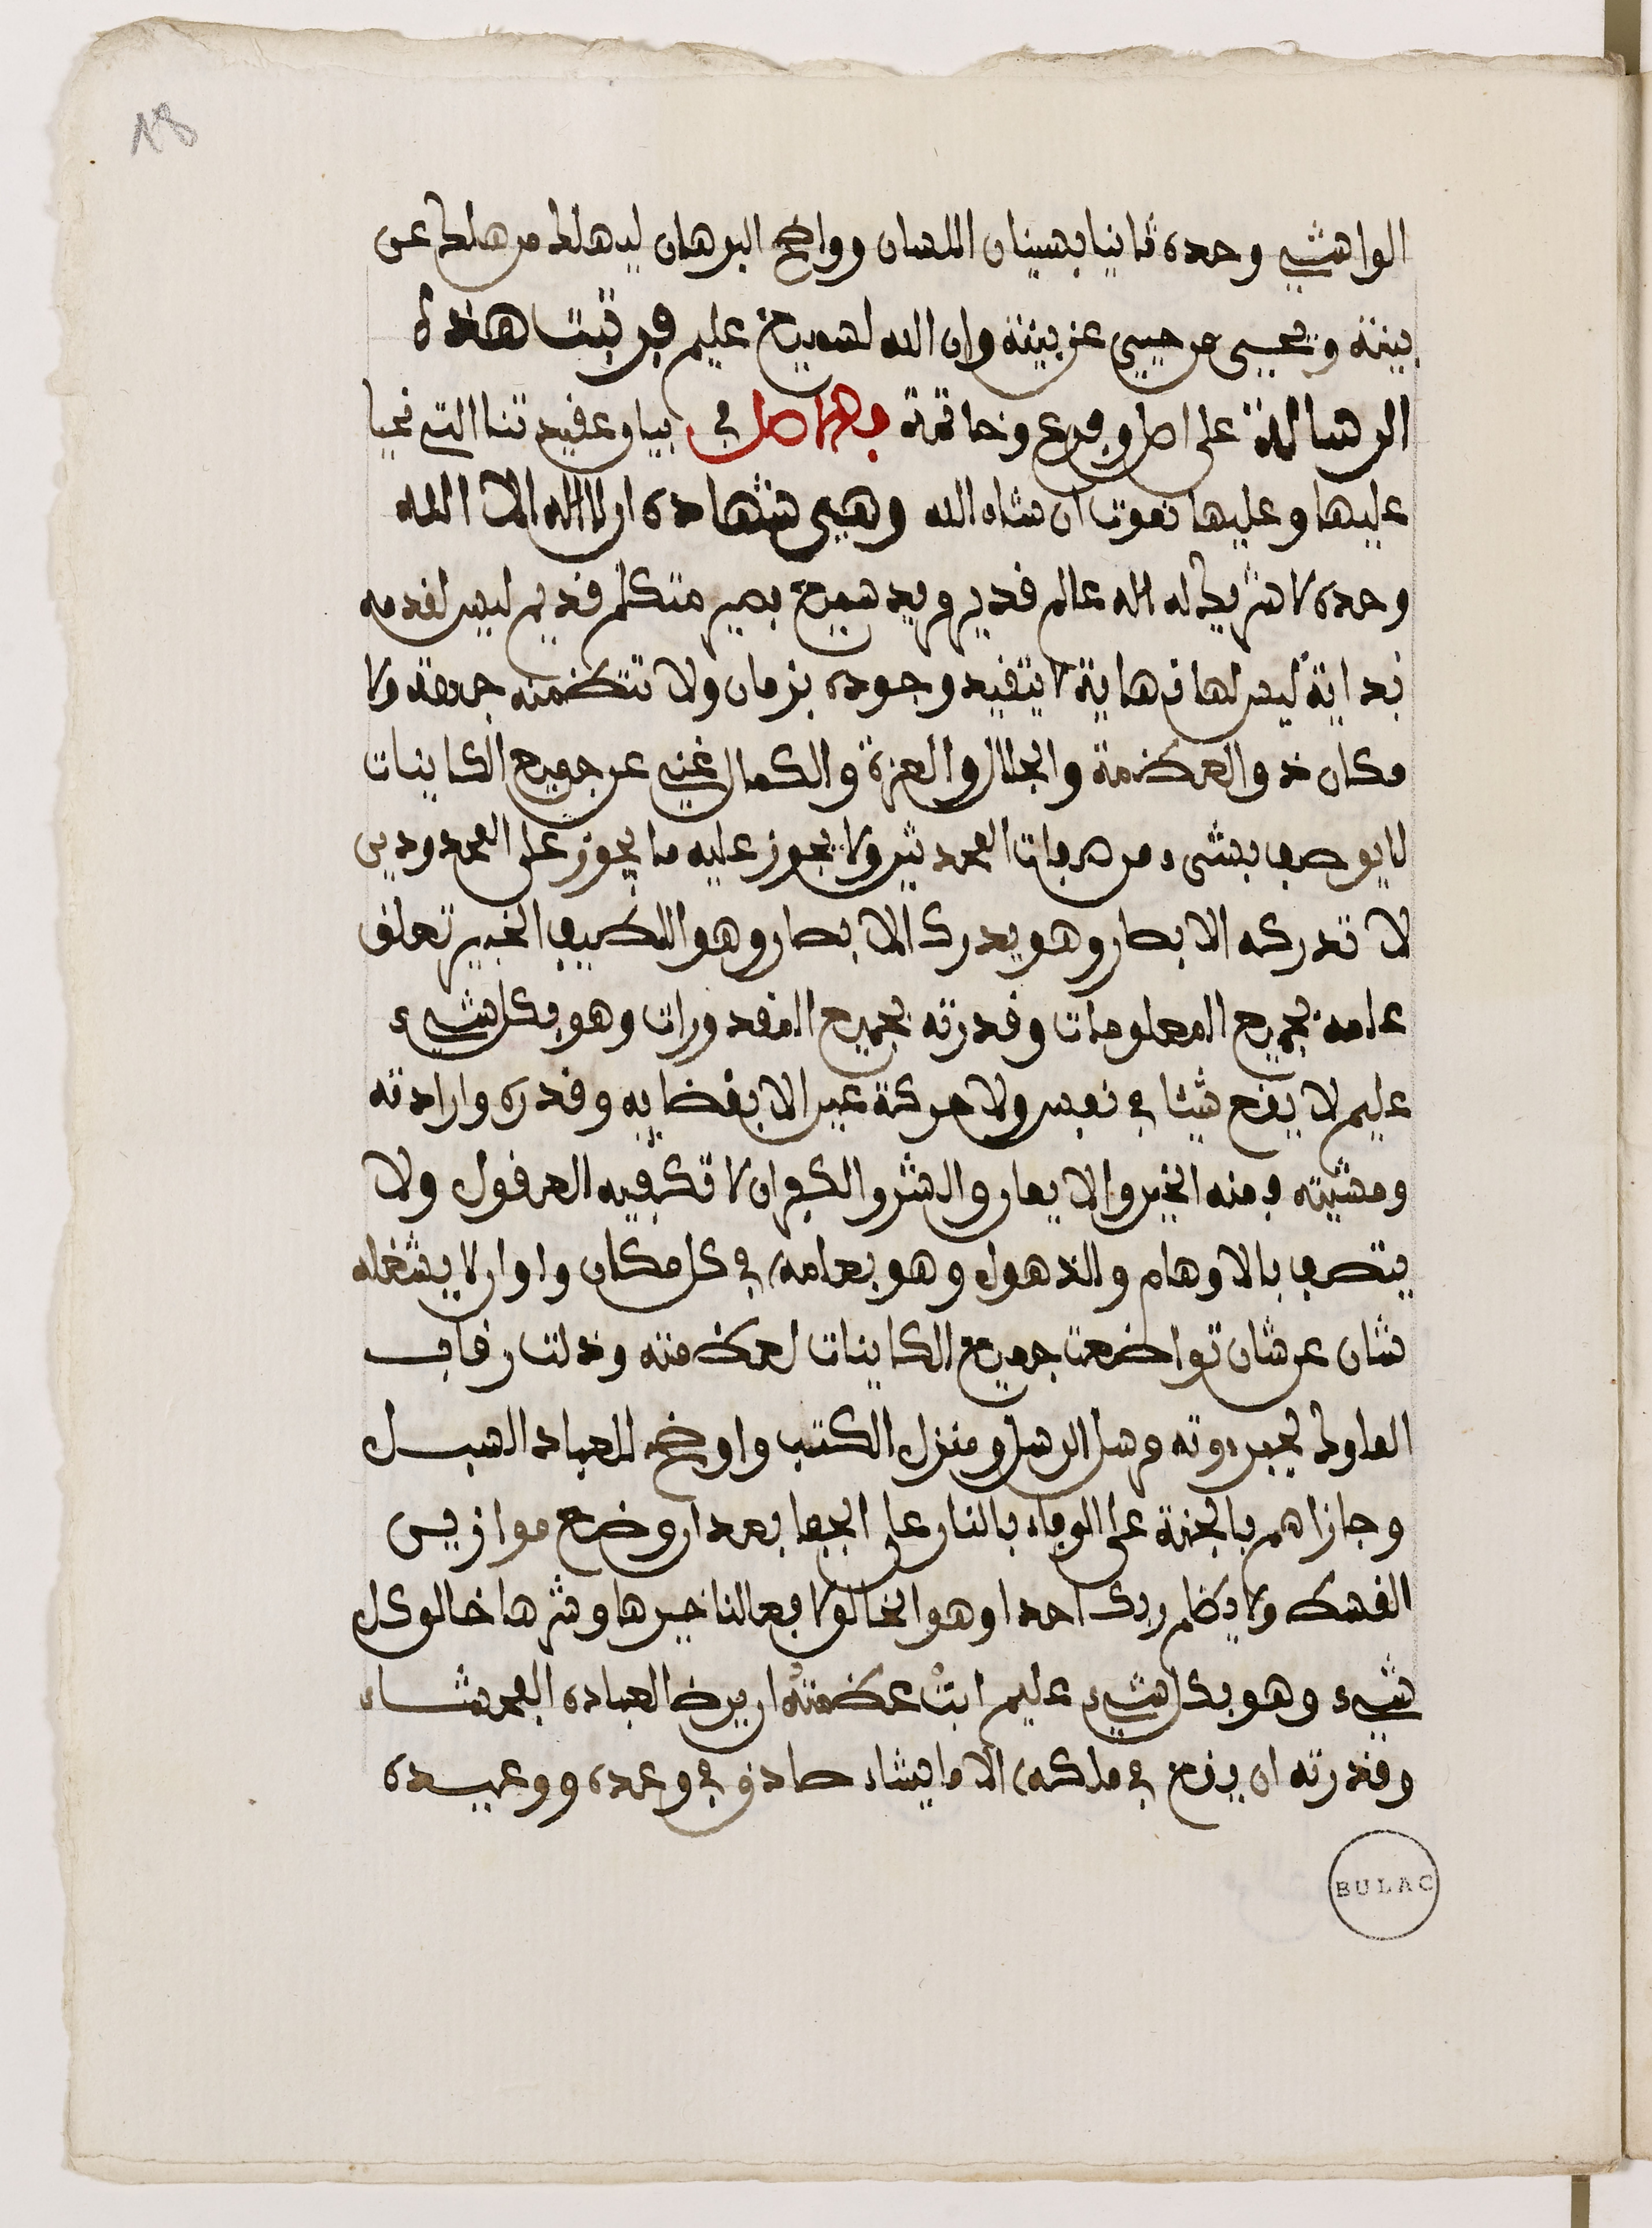 18
الواشي وحده ثانيا بسنان اللسان وواضح البرهان ليهلك من هلك عن
بينة ويحيى من حيي عن بينة وان الله لسميع عليم فرتبت هذه
الرسالة على اصل وفرع وخاتمة فالاصل في بيان عقيدتنا التي نحيا
عليها وعليها نموت ان شاء الله وهي شهادة ان لا اله الا الله
وحده لا شريك له اله عالم قدير مريد سميع بصير متكلم قديم ليس لقدمه
بداية ليس لها نهاية لا يتقيد وجوده بزمان ولا تتضمنه جهة ولا
مكان ذو العظمة والجلال والعزة والكمال غني عن جميع الكاينات
لا يوصف بشيء من صفات المحدثين ولا يجوز عليه ما يجوز على المحدودين
لا تدركه الابصار وهو يدرك الابصار وهو اللطيف الخبير تعلق
علمه بجميع المعلومات وقدرته بجميع المقدورات وهو بكل شيء
عليم لا يقع شيئا في نفس ولا حركة عين الا بقضايه وقدره وارادته
ومشيته فمنه الخير والايمان والشر والكفران لا تكيفيه العقول ولا
يتصف بالاوهام والذهول وهو بعلمه في كل مكان واوان لا يشغله
شان عن شان تواضعت جميع الكاينات لعظمته وذلت رقاب
الملوك لجبروته مرسل الرسل ومنزل الكتب واوضح للعباد السبل
وجازاهم بالجنة على الوفاء بالنار على الجفا بعد ان وضع موازين
القسط ولا يظلم ربك احدا وهو الخالق لافعالنا خيرها وشرها خالق كل
شيء وهو بكل شيء عليم ابت عظمته ان يرضى لعباده الفحشاء
وقدرته ان يقع في ملكه الا ما يشاء صادق في وعده ووعيده
BULAC